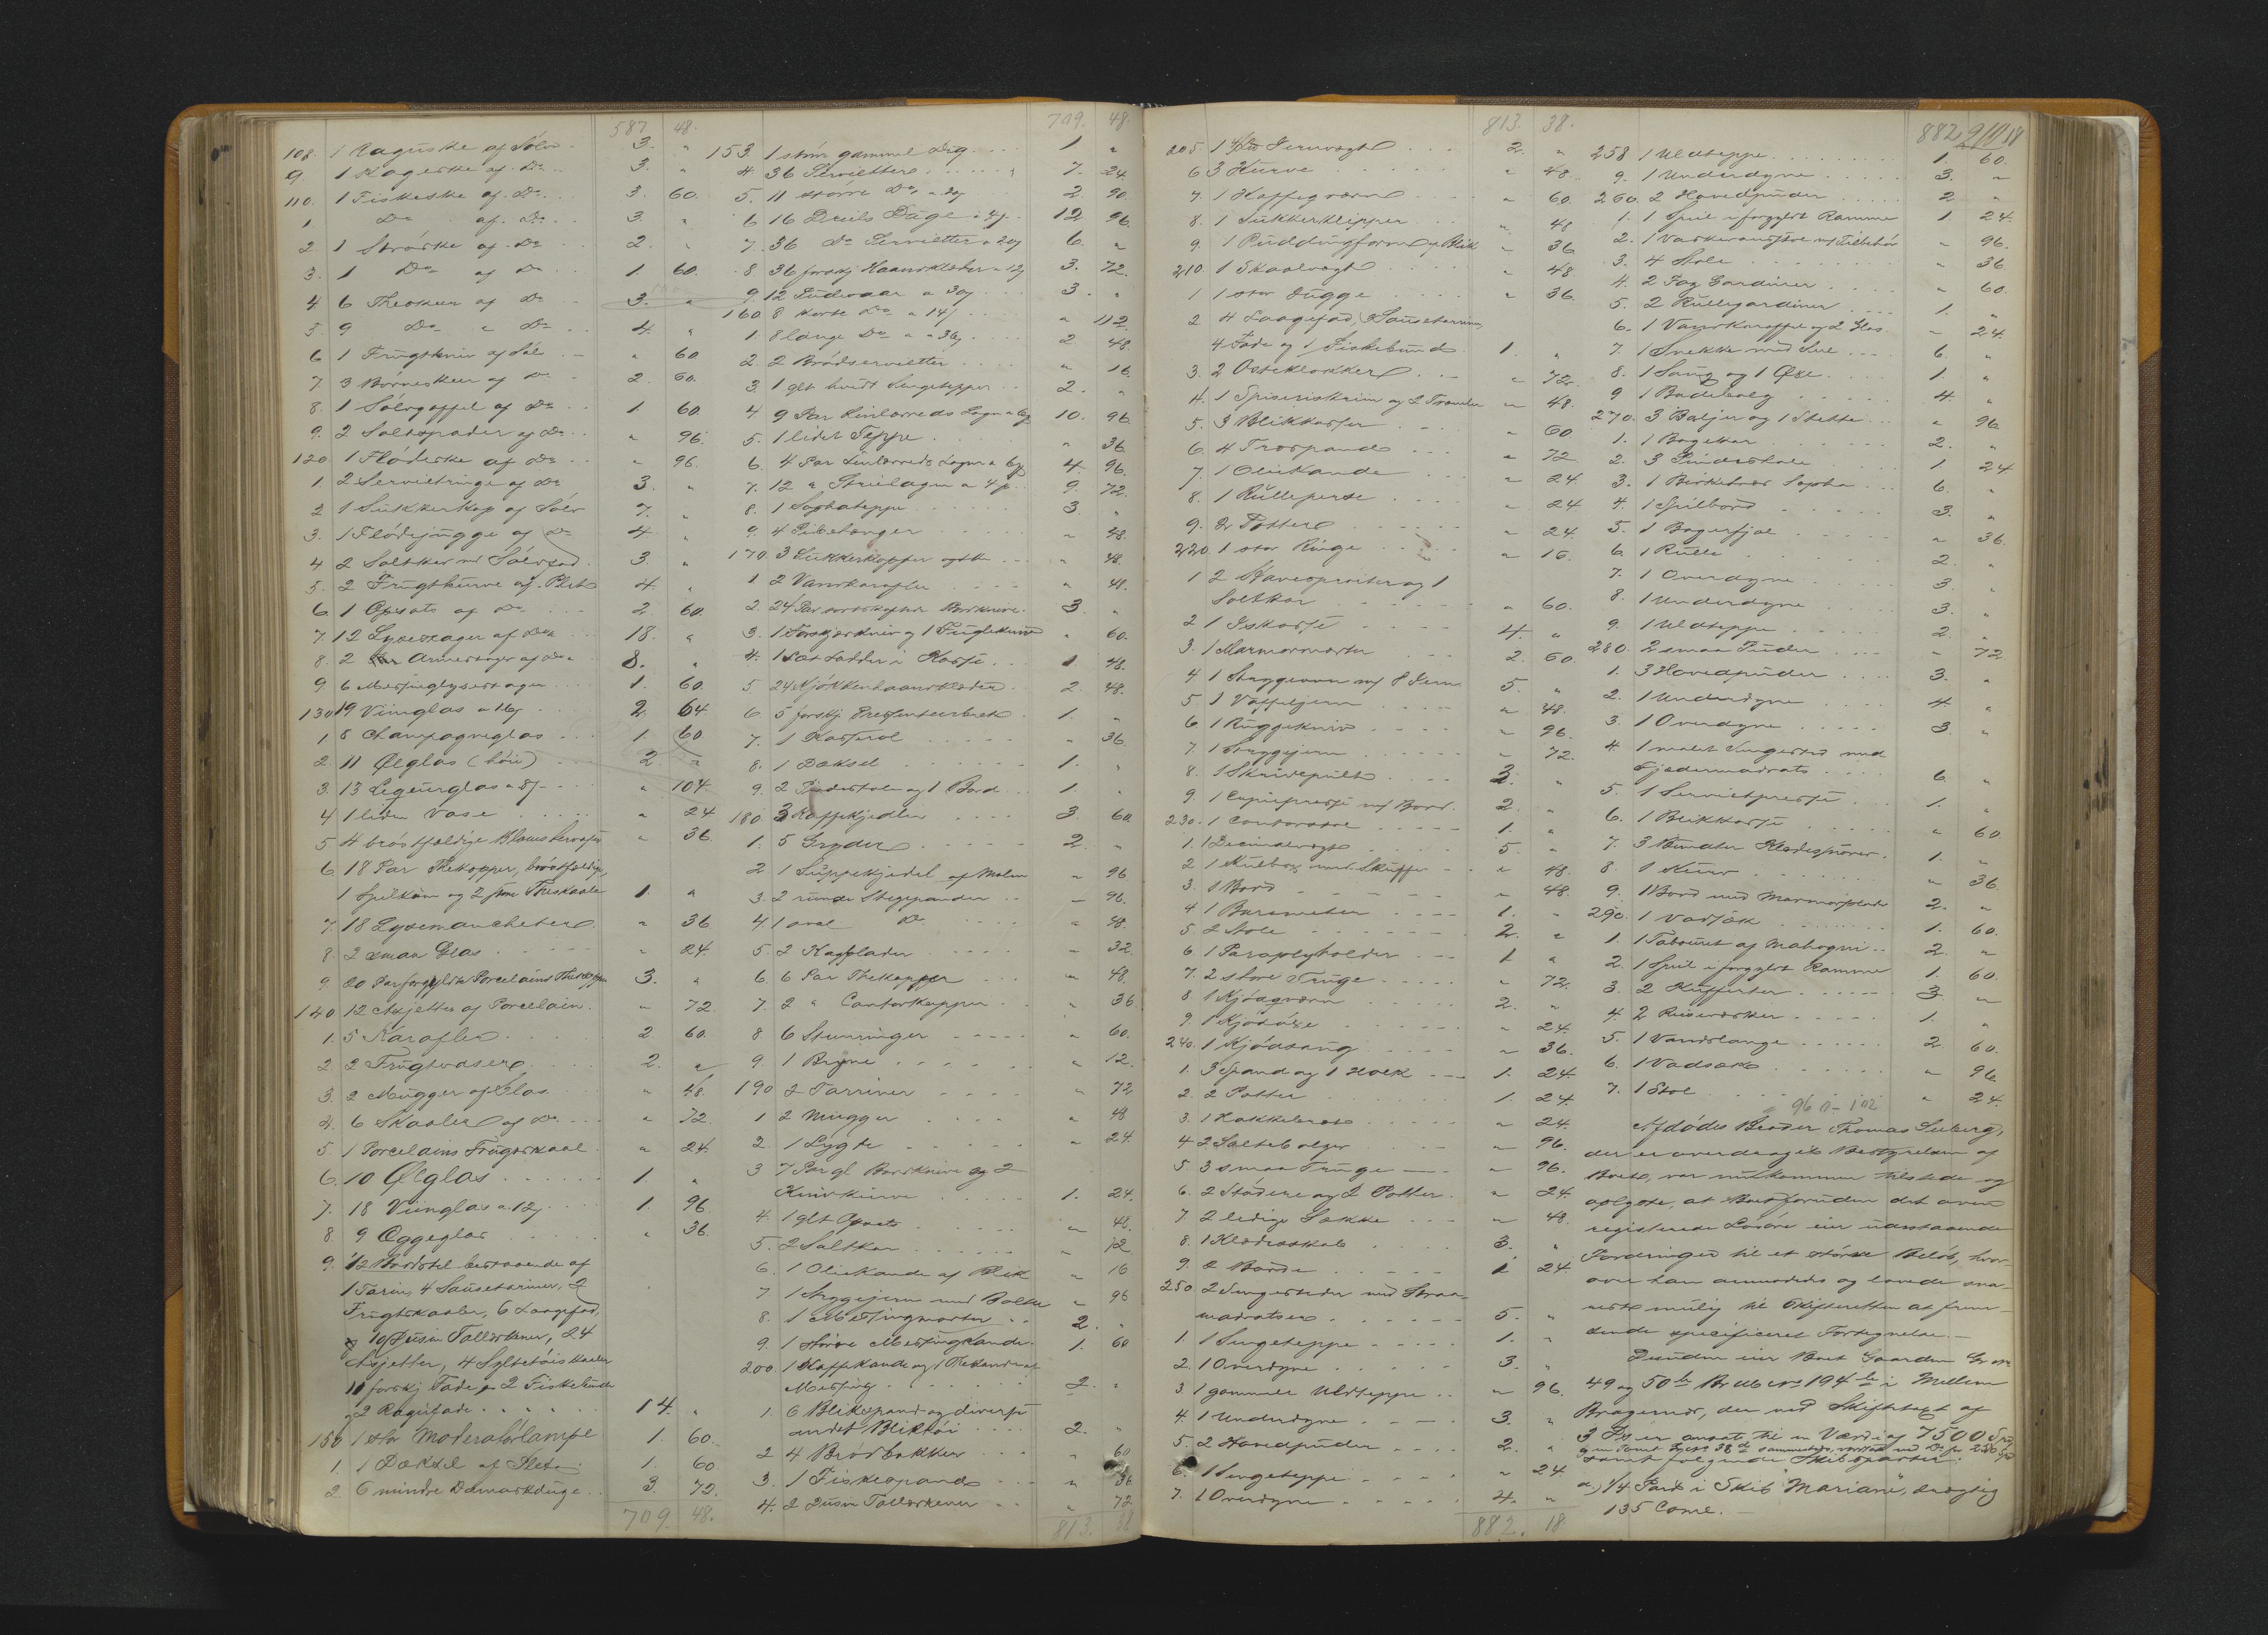 587 48.
108. 1 Raguske af Sölv 3. "
9. 1 Kageske af Do 3. "
110. 1 Fiskeske af Do 3. 60.
1. Do af Do 3. "
2. 1 Ströske af Do 2. "
3. 1 Do af Do 1. 60.
4. 6 Theskeer af Do 3. "
5. 9 Do a Do 4. "
6. 1 Frugtkniv af Sölv " 60
7. 3 Börneskeer af Do 2. 60.
8. 1 Sölvgaffel af Do 1. 60
9. 2 Saltspader af Do " 96.
120. 1 Flödeske af Do " 96.
1. 2 Servietringe af Do 3. "
2. 1 Sukkerkop af Sölv 7. "
3. 1 Flödejugge af Do 4. "
4. 2 Saltkar med Sölvfad 3. "
5. 2 Frugtkurve af Plet 4. "
6. 1 Opsats af Do 2. 60.
7. 12 Lysestager af Do 18. "
8. 2 Armestager af Do 8. "
9. 6 Messinglysestager 1. 60.
130. 19 Viinglas a 16s 2. 64
1. 8 Champagneglas 1. 60
2. 11 Ølglas (höie) 2. "
3. 13 Liqeurglas a 8s " 104.
4. 1 liden Vase " 24
5. 4 bröstfældige Blomstervaser " 36.
6. 18 Par Thekopper, bröstfældige,
1 Spilkum og 2 store Theskaale 1. "
7. 18 Lysemanchetter " 36
8. 2 smaa Glas " 24.
9. 20 Par forgyldte Porcelains Thekopper 3. "
140. 12 Asjetter af Porcelain. " 72
1. 5 Karafler 2 60.
2. 2 Frugtvaser 2. "
3. 2 Mugger af Glas " 48.
4. 6 Skaaler af Do " 72.
5. 1 Porcelains Frugtskaal " 24.
6. 10 Ølglas 1. "
7. 18 Viinglas a 12s 1. 96.
8. 9 Æggeglas " 36.
9. 1/2 Bordstel bestaaende af
1 Tarin, 4 Sausetariner, 2
Frugtskaaler, 6 Laagefad,
10 Dusin Tallerkener, 24
Asjetter, 4 Syltetöiskaaler
11 forskj Fade og 2 Fiskebunde
og 2 Ragufade 14. "
150 1 stor Moderatörlampe 1. 60.
1. 1 Dæksel af Plet 1. 60
2. 6 mindre Damaskduge 3. 72.
709. 48.
709. 48.
153. 1 stor gammel Dug 1 "
4. 36 Servietter 7. 24
5. 11 större Do 2 90
6. 16 Dreils Duge 12. 96
7. 36 Do Servietter a 20s 6. "
8. 36 forskj Haandklæder a 12s 3. 72.
9. 12 Pudevaar a 30s 3. "
160. 8 korte Do a 14s " 112
1. 8 lange Do a 36s 2. 48.
2. 2 Brödservietter " 16
3. 1 glt hvidt Sengeteppe 2. "
4. 9 Par Linlærreds Lagen 10. 96
5. 1 lidet Teppe " 36
6. 4 Par Linlærreds Lagen 4. 96.
7. 12 " Strielagen 9. 72.
8. 1 Sophateppe 3. "
9. 4 Ildtænger " 48.
170. 3 Sukkerkopper " 48
1. 2 Vandkarafler " 48.
2. 24 Par sortskaftede Bordknive. 3. "
3. 1 Forskjærkniv og 1 Fuglekniv " 60.
4. 1 Sæt Lodder i Kasse 1. 48.
5. 24 Kjökkenhaandklæder 2. 48.
6. 5 forskj Presenteerbret 1. "
7. 1 Kasserol " 36
8. 1 Dæksel 1. "
9. 2 Pindestole og 1 Bord 1. "
180. 3 Kaffekjedler 3. 60.
1. 5 Gryder 2. "
2. 1 Suppekjedel af Malm " 96
3. 2 runde Stegepander " 96.
4. 1 oval Do " 48.
5. 2 Kageplader " 32
6. 6 Par Thekopper " 48.
7. 2 " Contorkopper " 36
8. 6 Steenringer " 60.
9. 1 Bryne " 12.
190 2 Tarriner " 72
1. 2 Mugger " 48
2. 1 Lygte " 24.
3. 7 Par gl Bordknive og 2
Knivkurve 1. 24.
4. 1 glt Opsats " 48.
5. 2 Saltkar " 12
6. 1 Oliekande af Blik " 16
7. 1 Strygejern med Bolte " 96
8. 1 Messingmorter 2. "
9. 1 större Messingkande 1. 60
200. 1 Kaffekande og 1 Thekande af
Messing 2. "
1. 6 Blikspand og diverse
andet Bliktöi 2. "
2. 4 Brödbakker " 60
3. 1 Fiskespand " 36
4. 2 Dusin Tallerkener " 72
813. 38
813. 38.
205. 1 Jernvægt 2. "
6. 3 Kurve " 48.
7. 1 Kaffeqværn " 60.
8. 1 Sukkerklipper " 48
9. 1 Puddingform af Blik " 36
210. 1 Skaalvægt " 48
1. 1 stor Jugge " 36
2. 4 Laagefad, 3 Sauseterriner,
4 Fade og 1 Fiskebund 1. "
3. 2 Osteklokker " 72.
4. 1 Spiseriskrin og 2 " 48.
5. 3 Blikkasser " 60
6. 4 Træspand " 72
7. 1 Oliekande " 24
8. 1 Rullepresse " 24
9. 2 Potter " 24.
220. 1 stor Ringe " 16
1. 2 og 1
Saltkar " 60.
2. 1 Iskasse 4. "
3. 1 Marmormorter 2. 60.
4. 1 Strygeovn m/ 8 Jern 5. "
5. 1 Vaffeljern " 48.
6. 1 Ruggekniv " 96.
7. 1 Strygejern " 72.
8. 1 Skrivepult 3. "
9. 1 Copiepresse m/ Bord. 2. "
230. 1 Contorstol 1. "
1. 1 Decimalvægt 5. "
2. 1 Kulbox med Skuffe " 48.
3. 1 Bord " 48.
4. 1 Barometer 1. "
5. 2 Stole 2. "
6. 1 Paraplyholder 1 "
7. 2 store Truge " 72.
8. 1 Kjödqværn 2. "
9. 1 Kjödöxe " 24.
240. 1 Kjödsaug " 36.
1. 3 Spand og 1 Holk 1. 24.
2. 2 Potter 1. 24.
3. 1 Hakkebret " 24.
4. 2 Saltebalger " 96.
5. 3 smaa Truge " 96.
6. 2 Stödere og 2 Potter. " 24
7. 2 ledige Sække " 48.
8. 1 Klædesskab 3. "
9. 2 Borde 1 24.
250. 2 Sengesteder med Straa-
madratser 5. "
1. 1 Sengeteppe 1. "
2. 1 Overdyne 3. "
3. 1 gammelt Uldteppe " 96.
4. 1 Underdyne 3. "
5. 2 Hovedpuder 2. "
6. 1 Sengeteppe " 24
7. 1 Overdyne 4. "
882. 18.
882 18
258 1 Uldteppe 1. 60.
9. 1 Underdyne 3. "
260. 2 Hovedpuder 2 "
1. 1 Speil i forgyldt Ramme 1 24.
2. 1 Vaskevandstol m/ Tilbehör " 96.
3. 4 Stole " 36
4. 2 Fag Gardiner " 60.
5. 2 Rullegardiner 1. "
6. 1 Vandkaraffel og 2 Glas " 24.
7. 1 Snekke med Seil 6. "
8. 1 Saug og 1 Øxe 1. "
9. 1 Badebalg 4. "
270. 3 Baljer og 1 Stette " 96
1. 1 Bagekar 2. "
2. 3 Pindestole 1. 24
3. 1 Birketræes Sopha 6. "
4. 1 Spilbord 3. "
5. 1 Bagerfjæl " 36
6. 1 Rulle 2. "
7. 1 Overdyne 3. "
8. 1 Underdyne 3. "
9. 1 Uldteppe 2. "
280. 2 smaa Puder " 72
1. 3 Hovedpuder 3. "
2. 1 Underdyne 4. "
3. 1 Overdyne 3. "
4. 1 malet Sengested med
Fjedermadrats 6. "
5. 1 Servietpresse 1. "
6. 1 Blikkasse " 60
7. 3 Bundter Klædessnorer. 1. "
8. 1 Kurv " 36.
9. 1 Bord med Marmorplade 2. "
290. 1 Vadsæk 1. 60.
1. 1 Tabouret af Mahogni 2. "
2. 1 Speil i forgyldt Ramme 1. 60.
3. 2 Kufferter 3. "
4. 2 Reisevæsker 1. "
5. 1 Vandslange 2. 60.
6. 1 Vadsæk " 96
7. 1 Stol " 24.
Afdödes Broder Thomas Suberg,
der er overdraget Bestyrelsen af
Boet, var nu kommen tilstede og
opgste, at Boet foruden det oven
registrerede Lösöre eier udestaaende
Fordringer til et större Belöb, hvor-
over han anmodedes og lovede sna-
rest mulig til Skifteretten at frem-
sende specificeret Fortegnelse. –
Desuden eier Boet Gaarden Gr No
49 og 50 Br No 194 i Mellem
Bragernæs, der ved Skiftetaxt af
3 Ds er ansat til en Værdi af 7500 Spd
samt fölgende Skibsparter.
a.) 1/4 Part i Skib "Mariane", drægtig
135 Coml. –